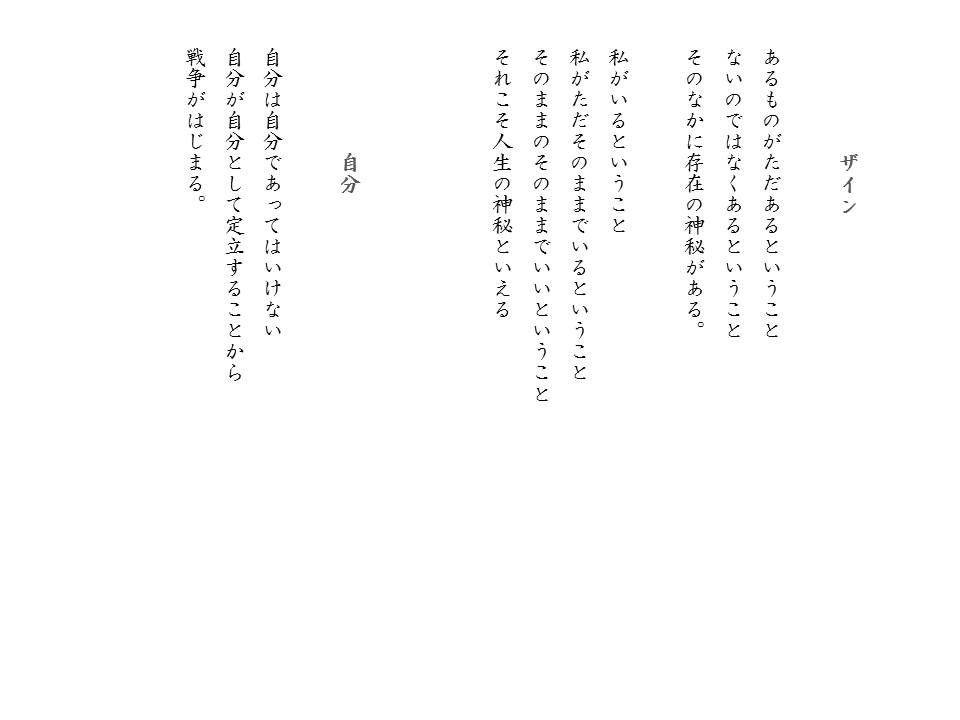 ザイン
あるものがただあるということ
ないのではなくあるということ
そのなかに存在の神秘がある。
私がいるということ
私がただそのままでいるということ
そのままのそのままでいいということ
それこそ人生の神秘といえる
自分
自分は自分であってはいけない
自分が自分として定立することから
戦争がはじまる。